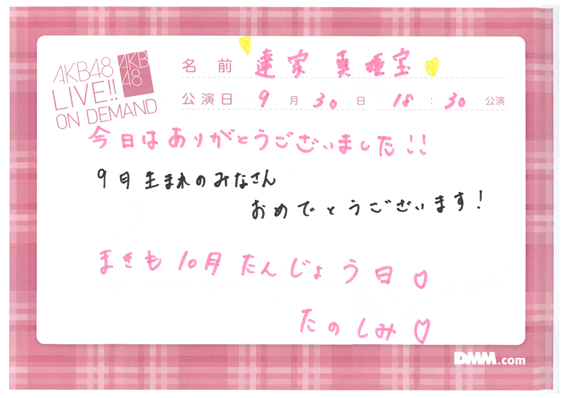 AKB48
LIVE!!
ON DEMAND
AKB48
名前 達家 真姫宝
公演日 9月30日 18:30 公演
今日はありがとうございました!!
9月生まれのみなさん
おめでとうございます!
まきも10月たんじょう日♡
たのしみ♡
DMM.com